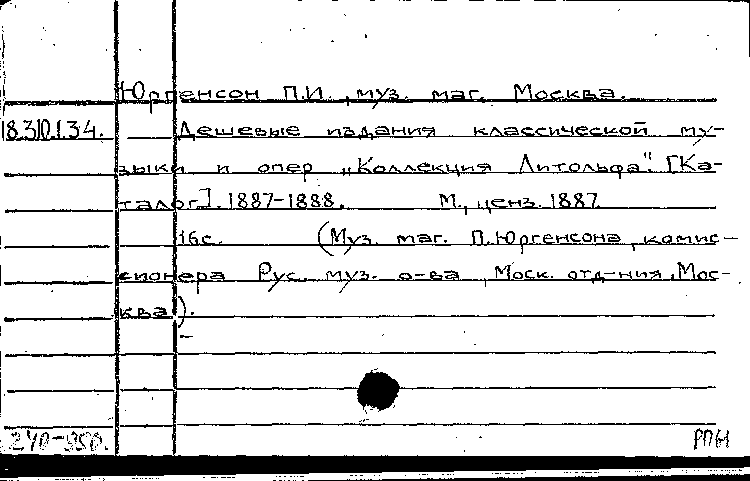 Юргенсон П.И., муз. маг. Москва.
18.310.1.34. Дешевые издания классической му-
зыки и опер „Коллекция Литольфа". [Ка-
талог]. 1887-1888. М., ценз. 1887.
16с. (Муз. маг. П. Юргенсона, комис-
сионера Рус. муз. о-ва, Моск. отд-ния, Мос-
ква).
240-950.